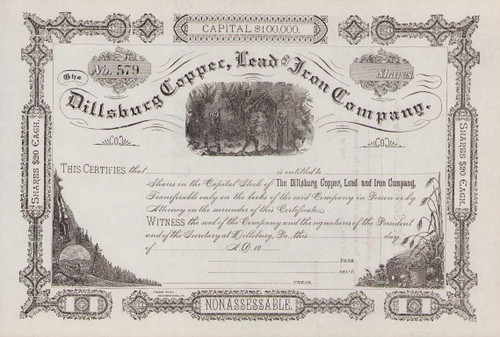 CAPITAL $100,000.
No. 579
Shares
The
Dillsburg Copper, Lead and Iron Company.
CO.
CO.
SHARES $20 EACH.
SHARES $20 EACH.
THIS CERTIFIES that is entitled to
Shares in the Capital Stock of The Dillsburg Copper, Lead and Iron Company,
Transferable only on the books of the said Company in Person or by
Attorney on the surrender of this Certificate.
WITNESS the seal of the Company and the signatures of the President
and of the Secretary at Dillsburg, Pa. this day
of A.D. 18
PRES.
SEC'Y.
TREAS.
NONASSESSABLE.